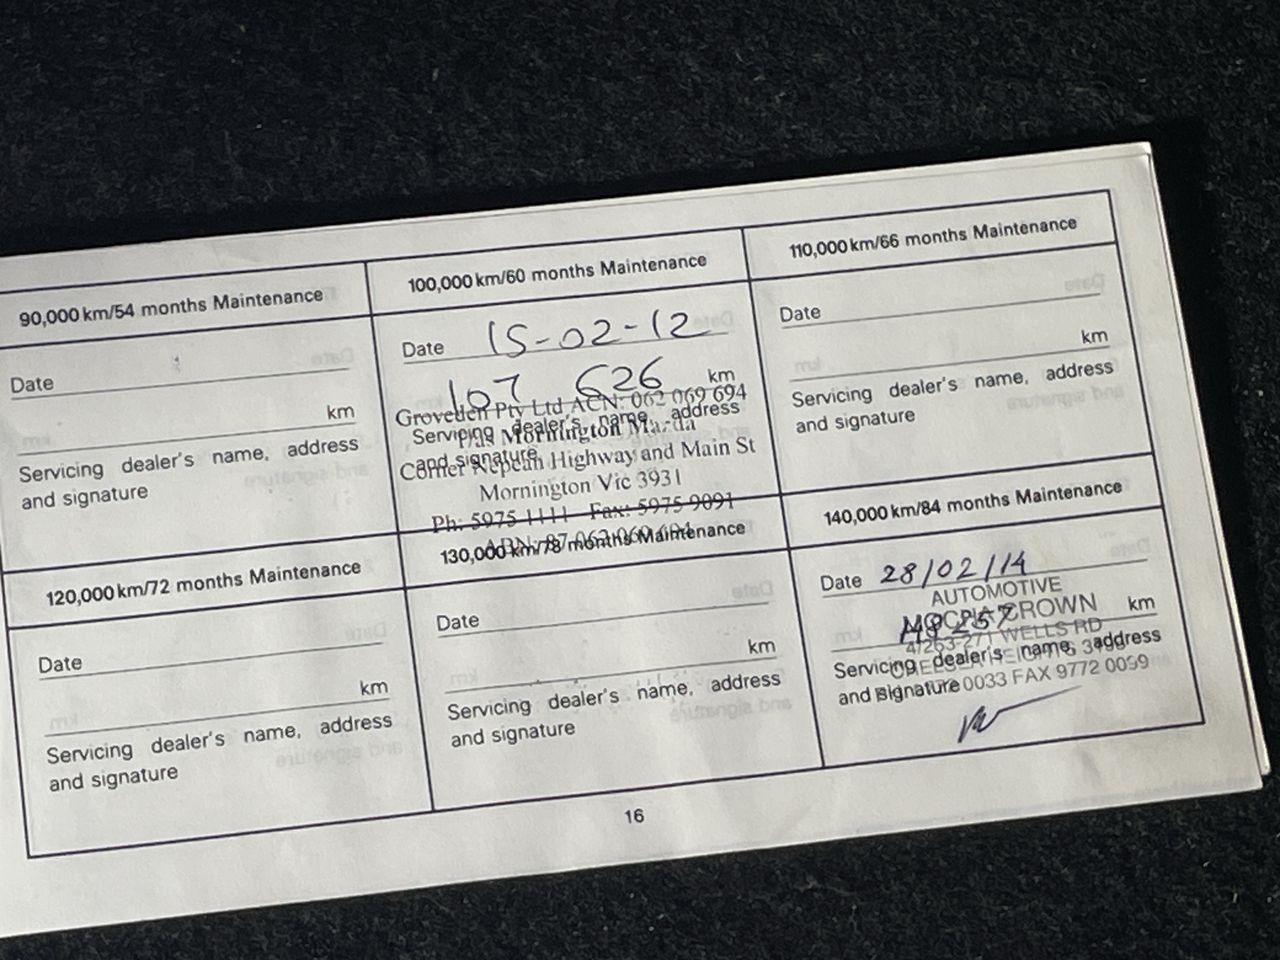 90,000 km/54 months Maintenance
Date
km
Servicing dealer's name, address
and signature
100,000 km/60 months Maintenance
Date 15-02-12
107 626 km
Groveden Pty Ltd ACN: 062 069 694
Servicing dealer's name, address
Mornington Mazda
and signature
Corner Nepean Highway and Main St
Mornington Vic 3931
Ph: 5975 1111 Fax: 5975 9091
110,000 km/66 months Maintenance
Date
km
Servicing dealer's name, address
and signature
120,000 km/72 months Maintenance
Date
km
Servicing dealer's name, address
and signature
130,000 km/78 months Maintenance
Date
km
Servicing dealer's name, address
and signature
140,000 km/84 months Maintenance
Date 28/02/14
AUTOMOTIVE
km
4/263-271 WELLS RD
Servicing dealer's name, address
and signature
0033 FAX 9772 0099
16